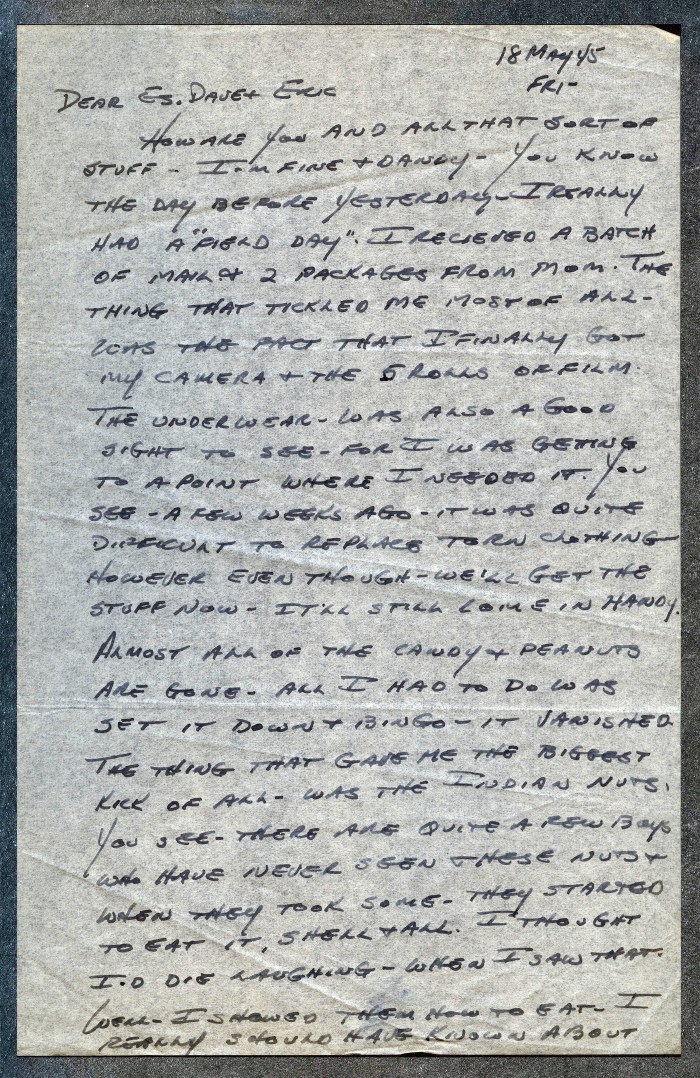 18 May 45
FRI-
DEAR ES. DAVE + ERIC
HOW ARE YOU AND ALL THAT SORT OF
STUFF - I'M FINE + DANDY - YOU KNOW
THE DAY BEFORE YESTERDAY - I REALLY
HAD A "FIELD DAY". I RECIEVED A BATCH
OF MAIL + 2 PACKAGES FROM MOM. THE
THING THAT TICKLED ME MOST OF ALL -
WAS THE FACT THAT I FINALLY GOT
MY CAMERA + THE 5 ROLLS OF FILM.
THE UNDERWEAR - WAS ALSO A GOOD
SIGHT TO SEE - FOR I WAS GETTING
TO A POINT WHERE I NEEDED IT. YOU
SEE - A FEW WEEKS AGO - IT WAS QUITE
DIFFICULT TO REPLACE TORN CLOTHING
HOWEVER EVEN THOUGH - WE'LL GET THE
STUFF NOW - IT'LL STILL COME IN HANDY.
ALMOST ALL OF THE CANDY + PEANUTS
ARE GONE - ALL I HAD TO DO WAS
SET IT DOWN + BINGO - IT VANISHED
THE THING THAT GAVE ME THE BIGGEST
KICK OF ALL - WAS THE INDIAN NUTS.
YOU SEE - THERE ARE QUITE A FEW BOYS
WHO HAVE NEVER SEEN THESE NUTS +
WHEN THEY TOOK SOME - THEY STARTED
TO EAT IT, SHELL + ALL. I THOUGHT
I'D DIE LAUGHING - WHEN I SAW THAT.
WELL - I SHOWED THEM HOW TO EAT - I
REALLY SHOULD HAVE KNOWN ABOUT